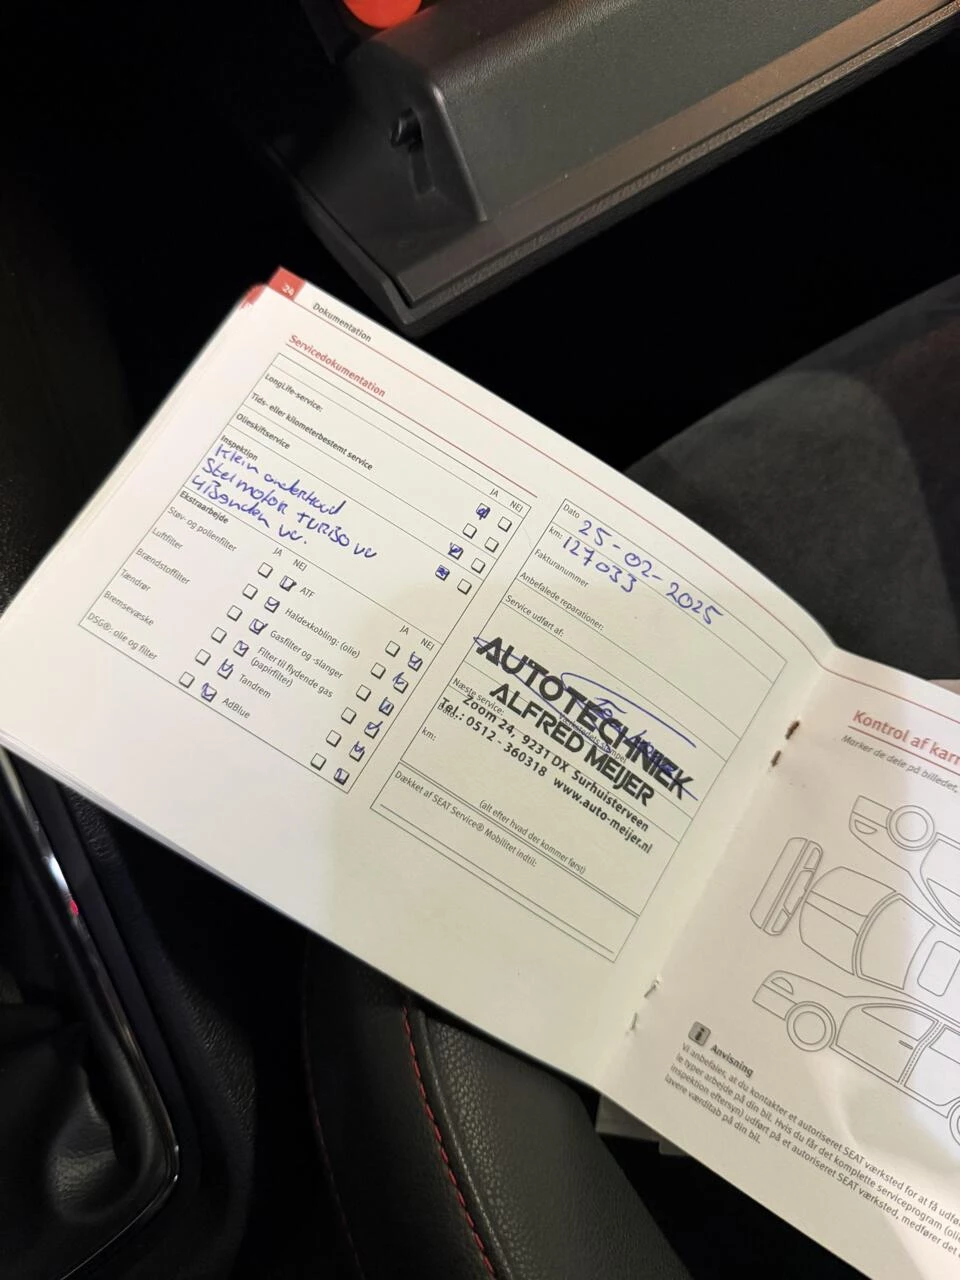 24
Dokumentation
Servicedokumentation
LongLife-service:
Tids- eller kilometerbestemt service
Olieskiftservice
Inspektion
JA NEJ
Klein onderhoud
Stelmotor TURBO vv
4 Banden vv.
Ekstraarbejde
JA NEJ
Støv- og pollenfilter
Luftfilter
Brændstoffilter
Tændrør
Bremsevæske
DSG®, olie og filter
JA NEJ
ATF
Haldexkobling: (olie)
Gasfilter og -slanger
Filter til flydende gas
(papirfilter)
Tandrem
AdBlue
Dato 25-02-2025
km: 127033
Fakturanummer
Anbefalede reparationer:
Service udført af:
AUTOTECHNIEK
ALFRED MEIJER
Zoom 24, 9231 DX Surhuisterveen
Tel.: 0512 - 360318 www.auto-meijer.nl
Næste service:
Dato:
stempel
km:
(alt efter hvad der kommer først)
Dækket af SEAT Service® Mobilitet indtil:
Kontrol af karr
Marker de dele på billedet,
i Anvisning
Vi anbefaler, at du kontakter et autoriseret SEAT værksted for at få udfør
le typer arbejde på din bil. Hvis du får det komplette serviceprogram (olie
inspektion eftersyn) udført på et autoriseret SEAT værksted, medfører det
lavere værditab på din bil.